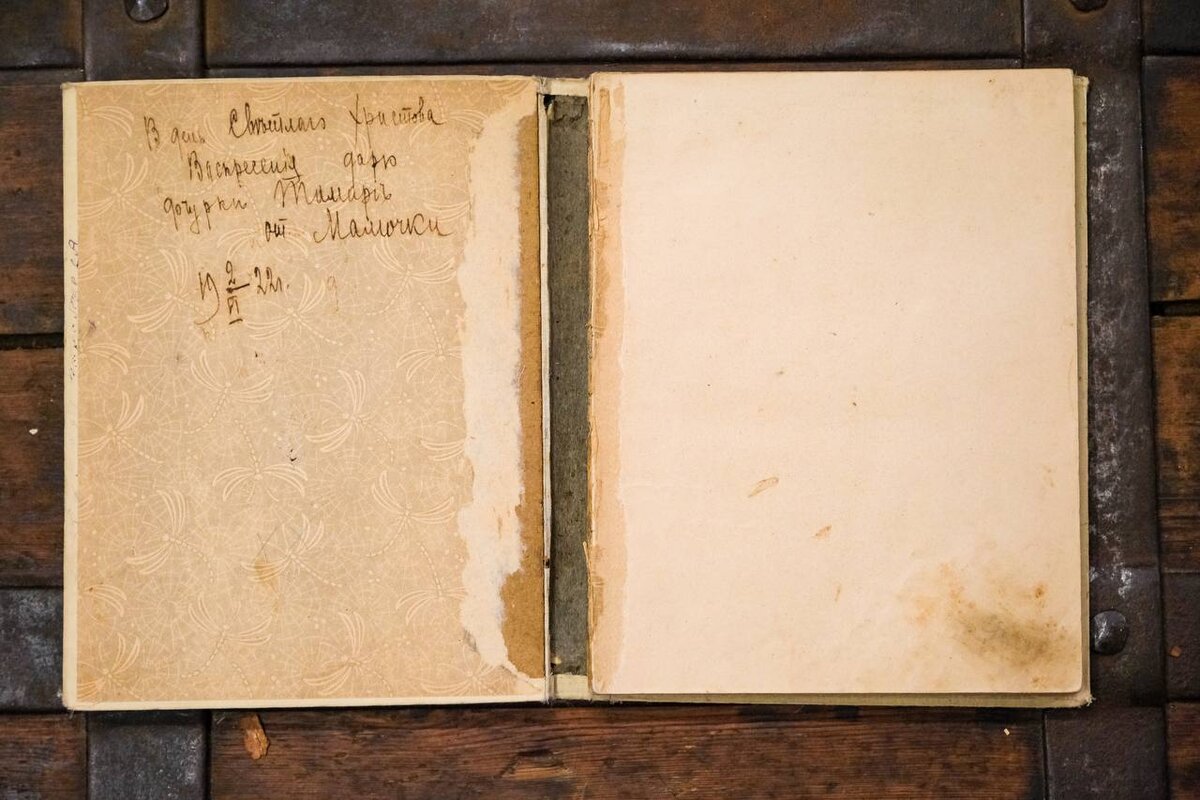 В день Свѣтлаго Христова
Воскресенія дарю
дочурки Тамарѣ
от Мамочки
19 2/VI 22г.